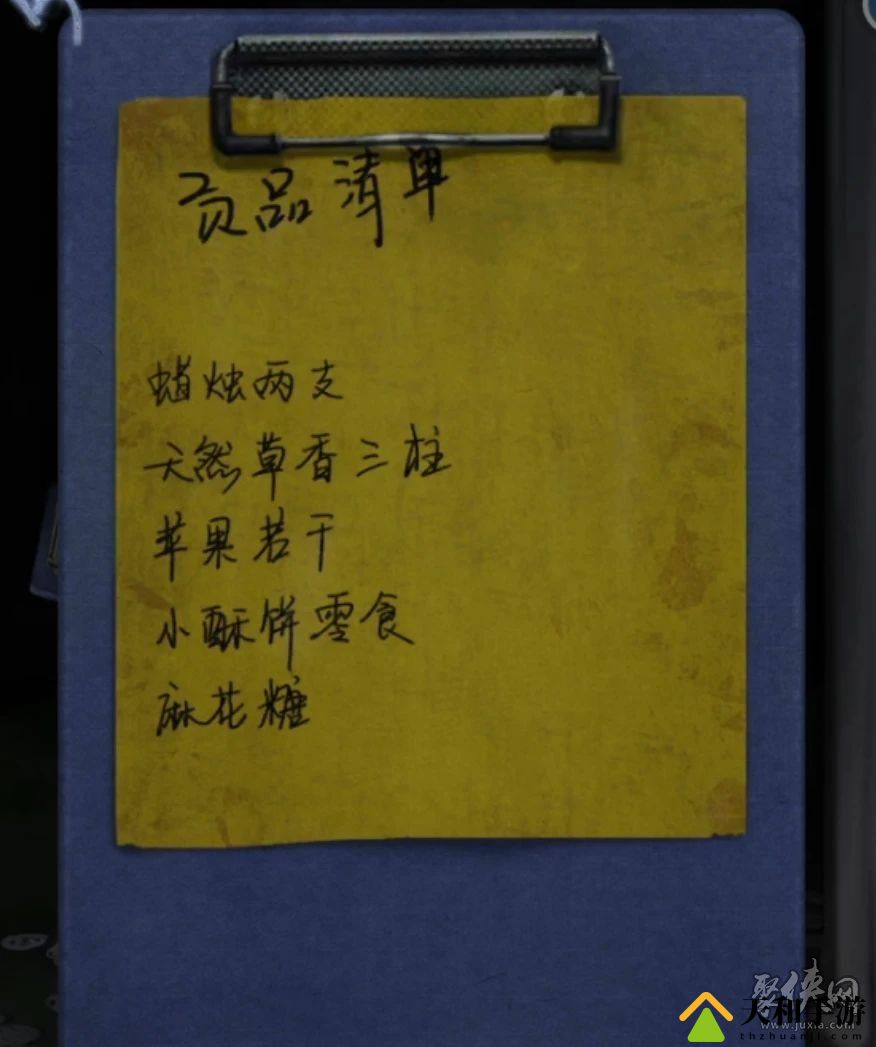 贡品清单
蜡烛两支
天然草香三柱
苹果若干
小酥饼零食
麻花糖
聚侠网
www.juxia.com
天和手游
thzhuanji.com